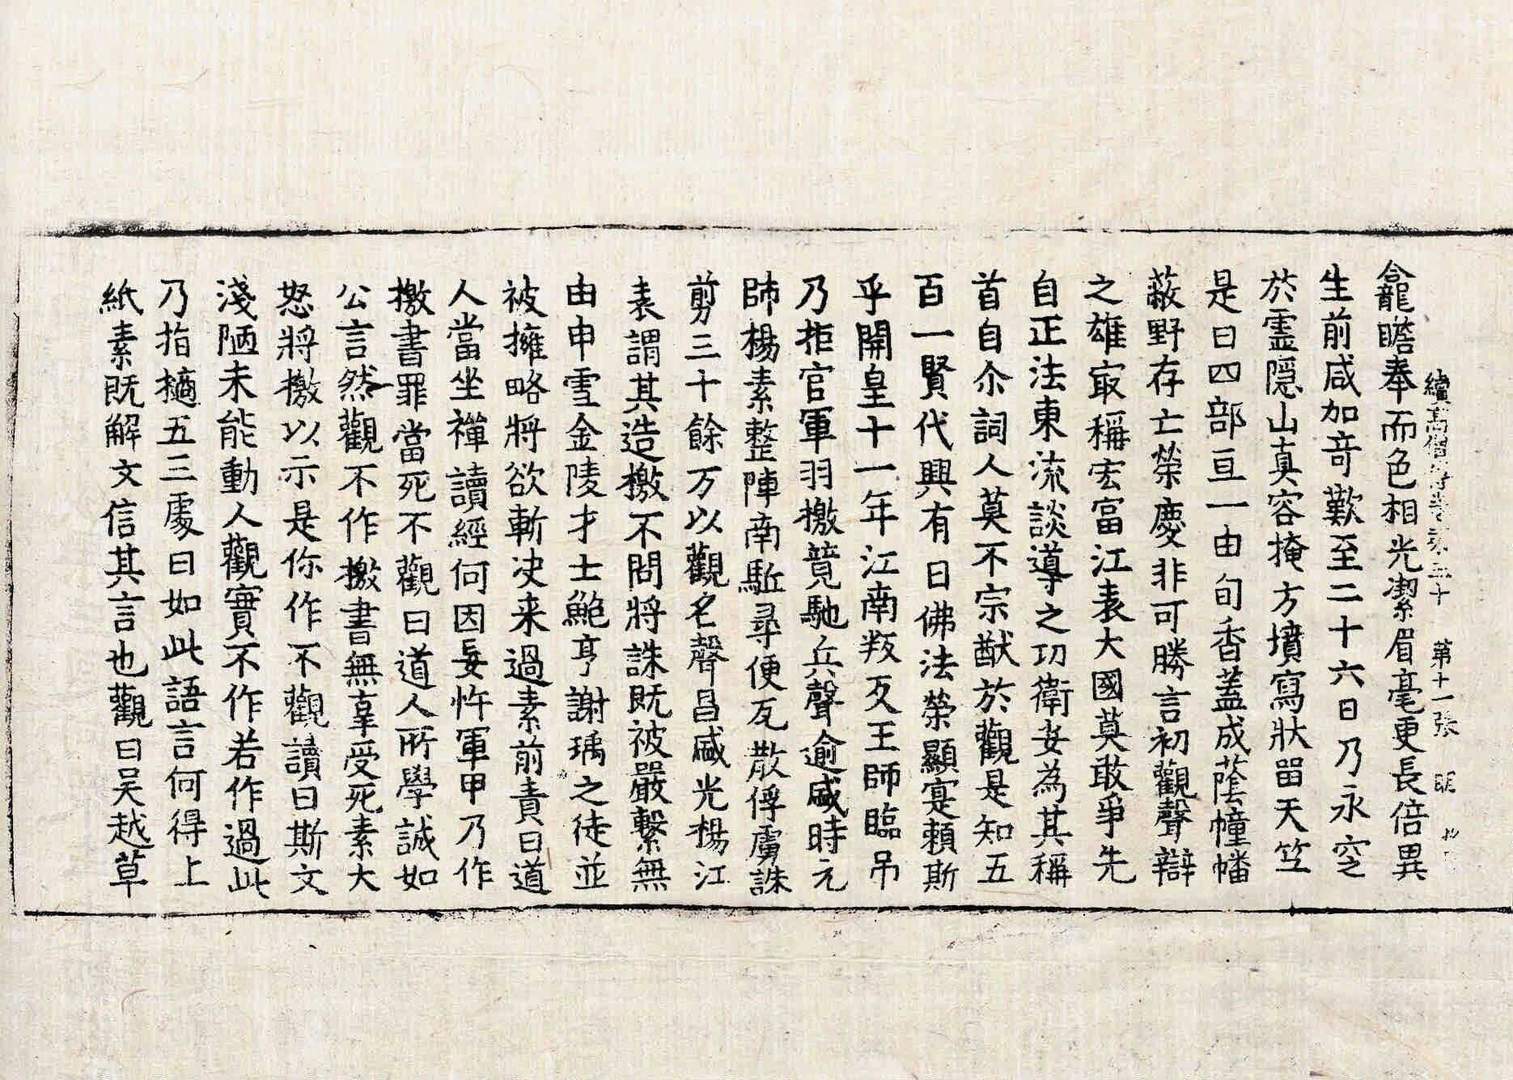 續高僧傳卷第三十　第十一張　明
龕瞻奉而色相光潔眉毫更長倍異
生前咸加竒歎至二十六日乃永窆
於靈隱山真容掩方墳寫狀留天竺
是日四部亘一由旬香蓋成蔭幢幡
蔽野存亡榮慶非可勝言初觀聲辯
之雄㝡稱宏富江表大國莫敢爭先
自正法東流談導之功衛安為其稱
首自尒詞人莫不宗猷於觀是知五
百一賢代興有日佛法榮顯寔賴斯
乎開皇十一年江南叛反王師臨吊
乃拒官軍羽檄競馳兵聲逾盛時元
帥楊素整陣南駈尋便瓦散俘虜誅
剪三十餘万以觀名聲昌盛光楊江
表謂其造檄不問將誅既被嚴繫無
由申雪金陵才士鮑亨謝瑀之徒並
被擁略將欲斬决来過素前責曰道
人當坐禪讀經何因妄忤軍甲乃作
檄書罪當死不觀曰道人所學誠如
公言然觀不作檄書無辜受死素大
怒將檄以示是你作不觀讀曰斯文
淺陋未能動人觀實不作若作過此
乃指擿五三處曰如此語言何得上
紙素既解文信其言也觀曰吴越草